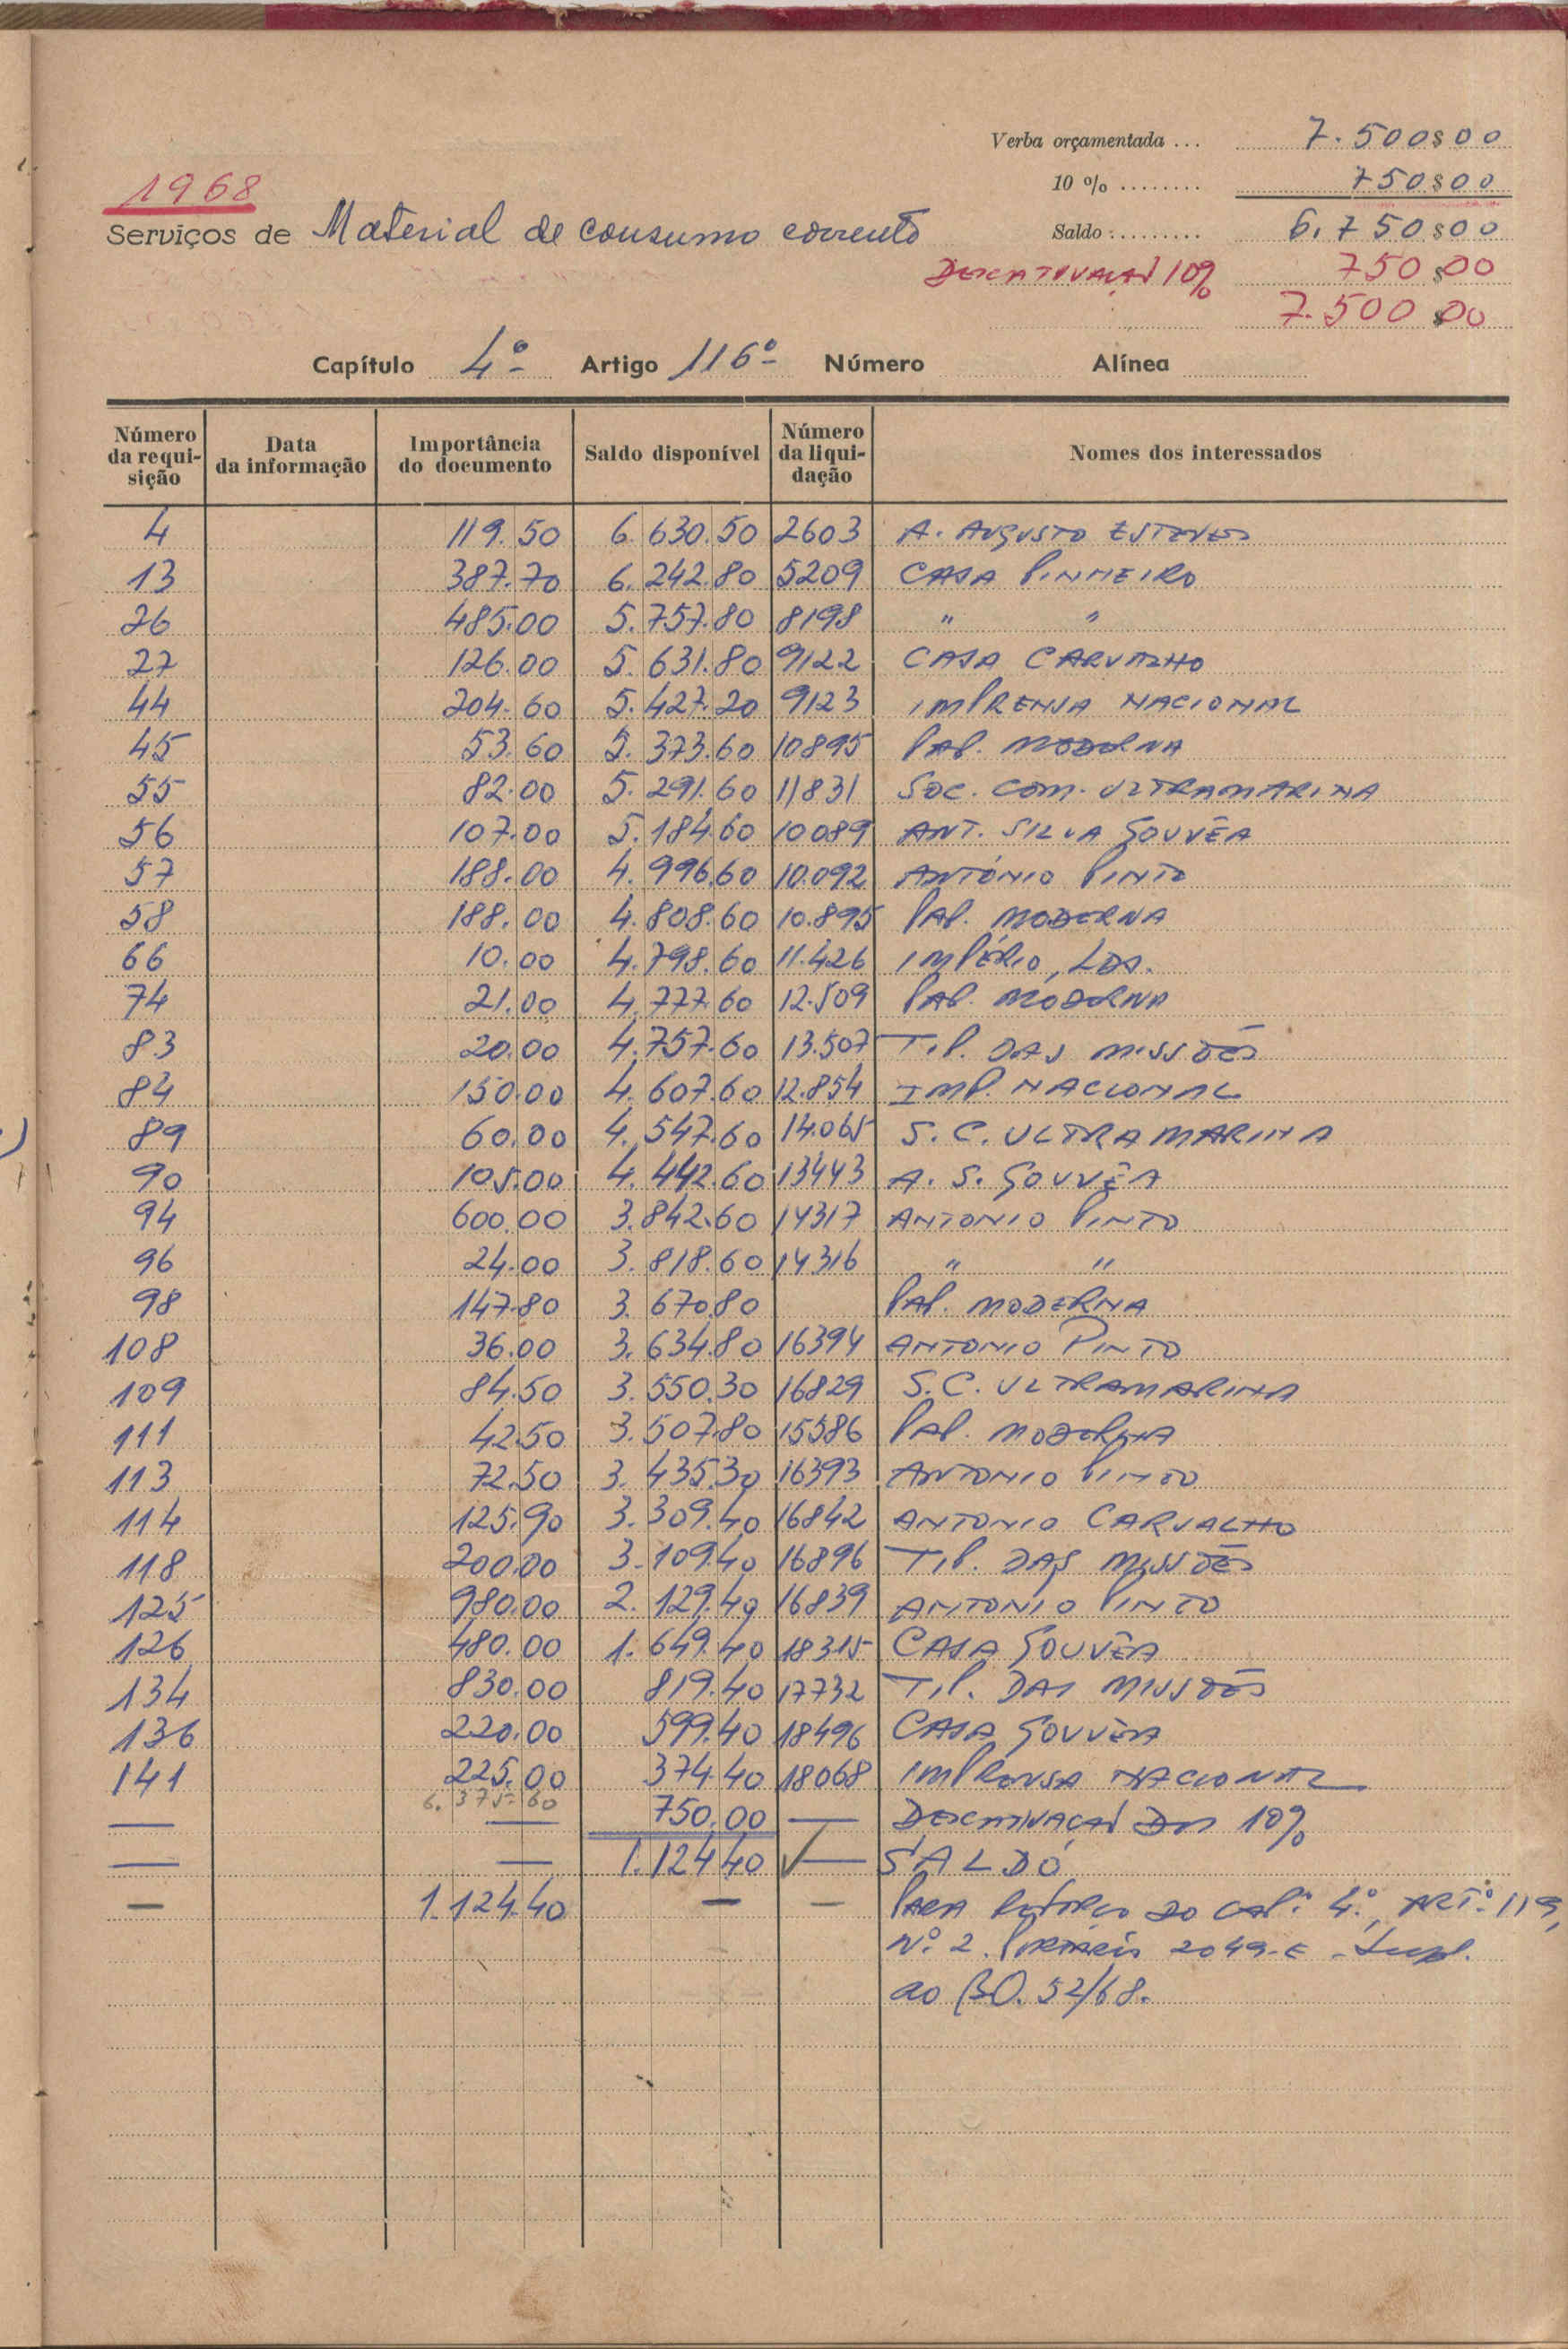 Verba orçamentada ... 7.500$00
10 % ........ 750$00
1968
Serviços de Material de consumo corrente
Saldo ......... 6.750$00
Descativação 10% 750$00
7.500$00
Capítulo 4º Artigo 116º Número Alínea
Número da requisição Data da informação Importância do documento Saldo disponível Número da liquidação Nomes dos interessados
4 119.50 6.630.50 2603 A. AUGUSTO ESTEVES
13 387.70 6.242.80 5209 CASA PINHEIRO
26 485.00 5.757.80 8198 " "
27 126.00 5.631.80 9122 CASA CARVALHO
44 204.60 5.427.20 9123 IMPRENSA NACIONAL
45 53.60 5.373.60 10895 PAP. MODERNA
55 82.00 5.291.60 11831 SOC. COM. ULTRAMARINA
56 107.00 5.184.60 10089 ANT. SILVA GOUVÊA
57 188.00 4.996.60 10.092 ANTÓNIO PINTO
58 188.00 4.808.60 10.895 PAP. MODERNA
66 10.00 4.798.60 11.426 IMPÉRIO, LDA.
74 21.00 4.777.60 12.509 PAP. MODERNA
83 20.00 4.757.60 13.507 TIP. DAS MISSÕES
84 150.00 4.607.60 12.854 IMP. NACIONAL
89 60.00 4.547.60 14.065 S. C. ULTRAMARINA
90 105.00 4.442.60 13443 A. S. GOUVÊA
94 600.00 3.842.60 14317 ANTONIO PINTO
96 24.00 3.818.60 14316 " "
98 147.80 3.670.80 PAP. MODERNA
108 36.00 3.634.80 16394 ANTONIO PINTO
109 84.50 3.550.30 16829 S.C. ULTRAMARINA
111 42.50 3.507.80 15586 PAP. MODERNA
113 72.50 3.435.30 16393 ANTONIO PINTO
114 125.90 3.309.40 16842 ANTONIO CARVALHO
118 200.00 3.109.40 16896 TIP. DAS MISSÕES
125 980.00 2.129.40 16839 ANTONIO PINTO
126 480.00 1.649.40 18315 CASA GOUVÊA
134 830.00 819.40 17732 TIP. DAS MISSÕES
136 220.00 599.40 18496 CASA GOUVÊA
141 225.00 374.40 18068 IMPRENSA NACIONAL
6.375.60
— — 750.00 — DESCATIVAÇÃO DOS 10%
— — 1.124.40 — SALDO
— 1.124.40 — — PARA REFORÇO DO CAP.º 4.º, ART.º 119,
N.º 2. PORTARIA 2049-E - Supl.
ao BO. 52/68.